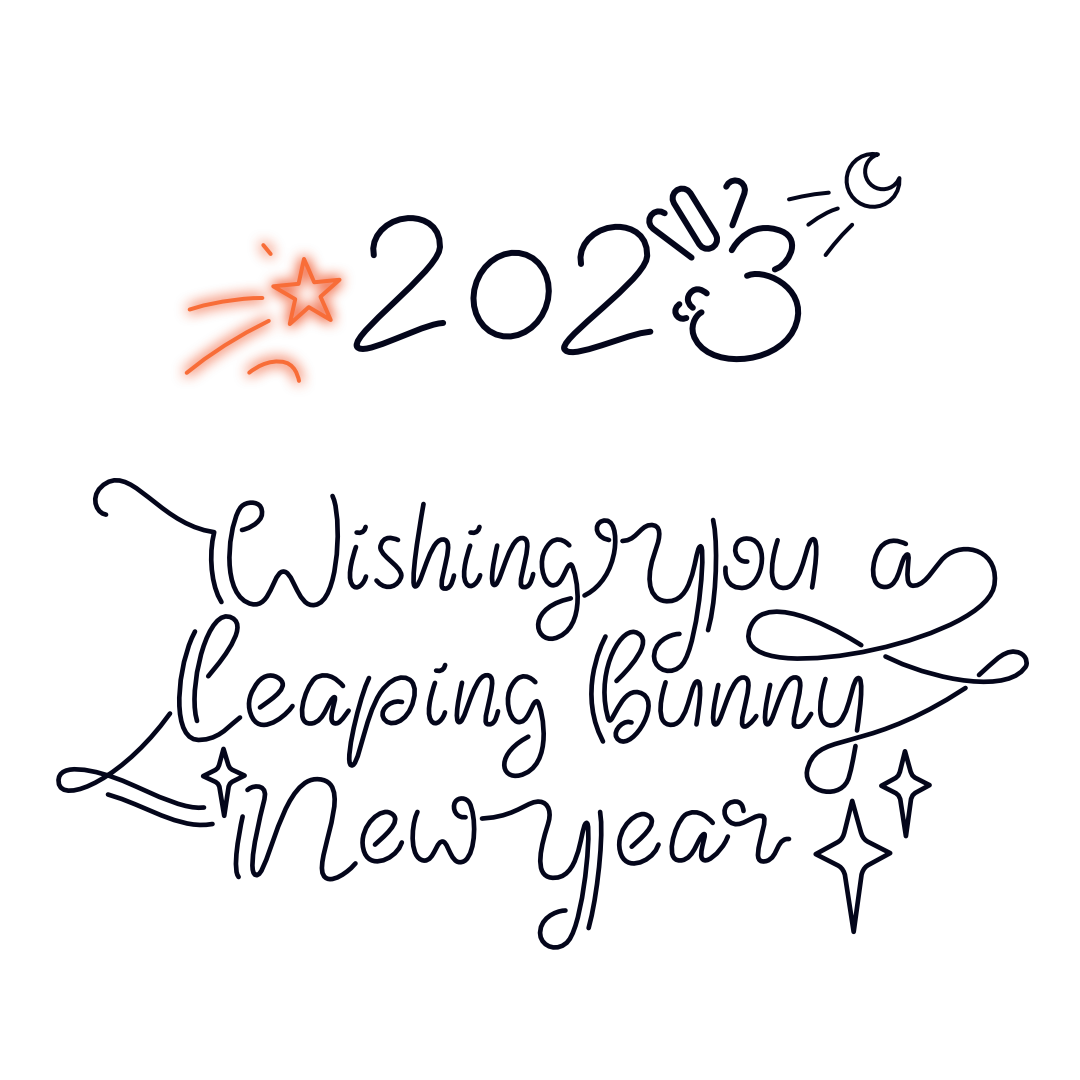 2023
Wishing you a
leaping bunny
New year